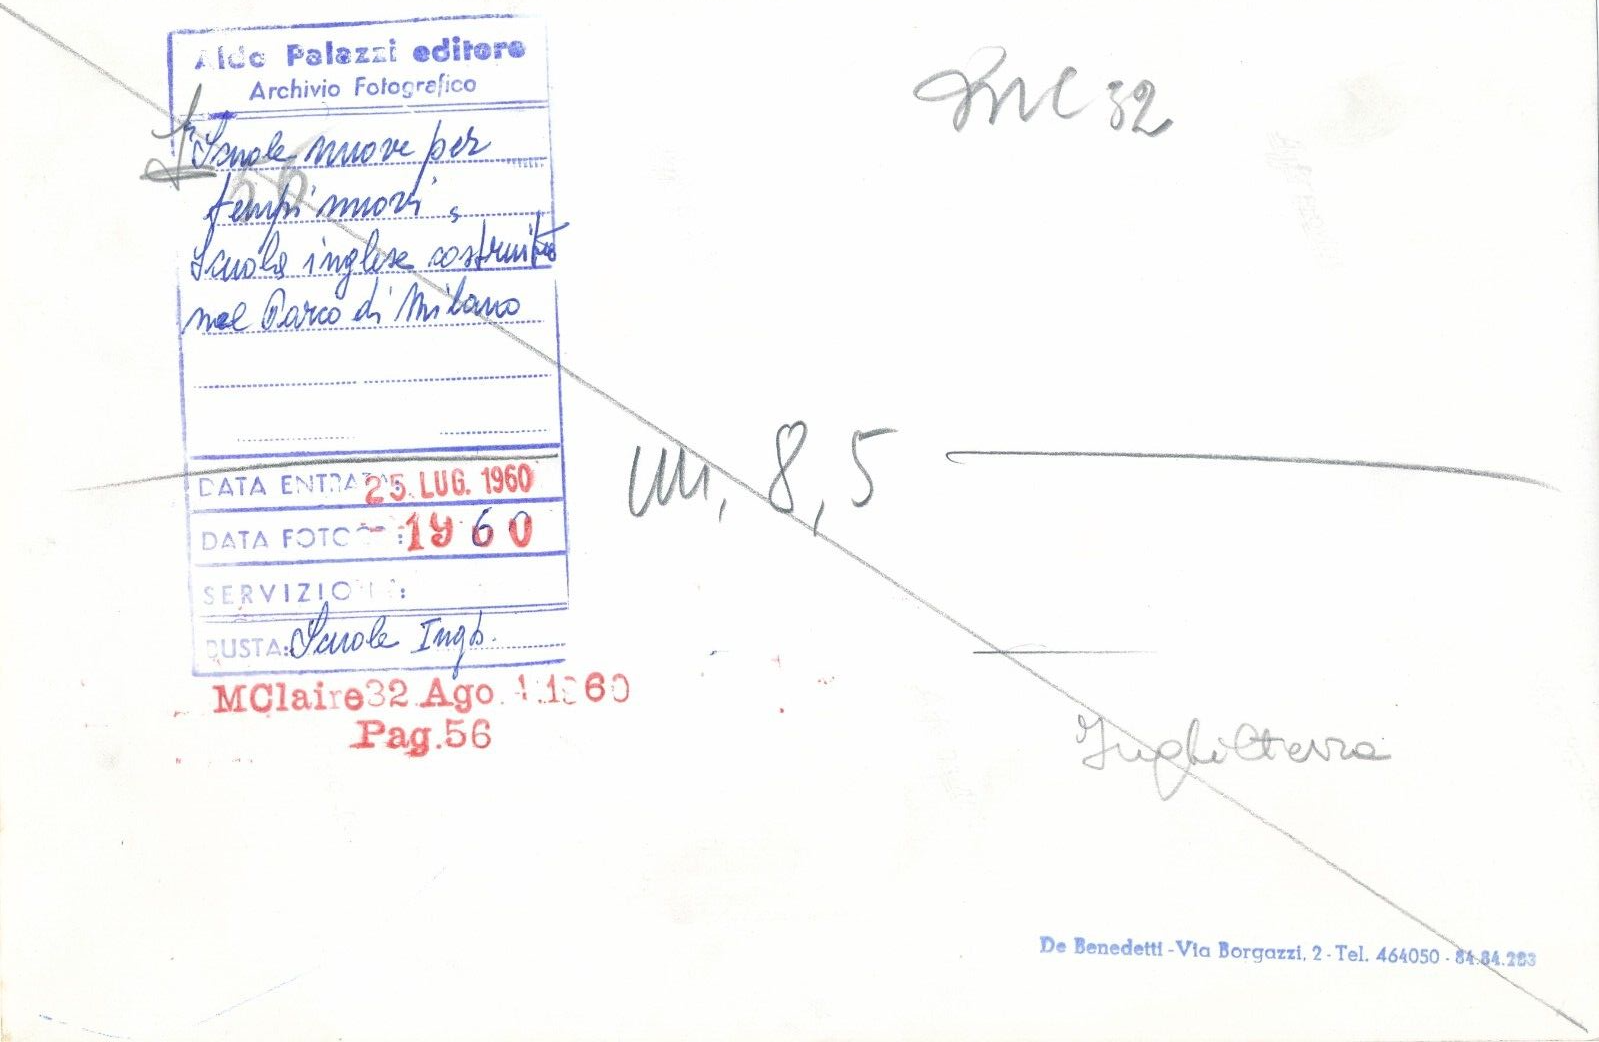 Aldo Palazzi editore
Archivio Fotografico
Scuole nuove per
tempi nuovi
Scuola inglese costruita
nel Parco di Milano
DATA ENTRATA 25. LUG. 1960
DATA FOTO : 1960
SERVIZIO :
BUSTA: Scuole Ingh.
MClaire32 Ago. 1960
Pag.56
32
56
m. 8,5
Inghilterra
De Benedetti - Via Borgazzi, 2 - Tel. 464050 - 84.84.283